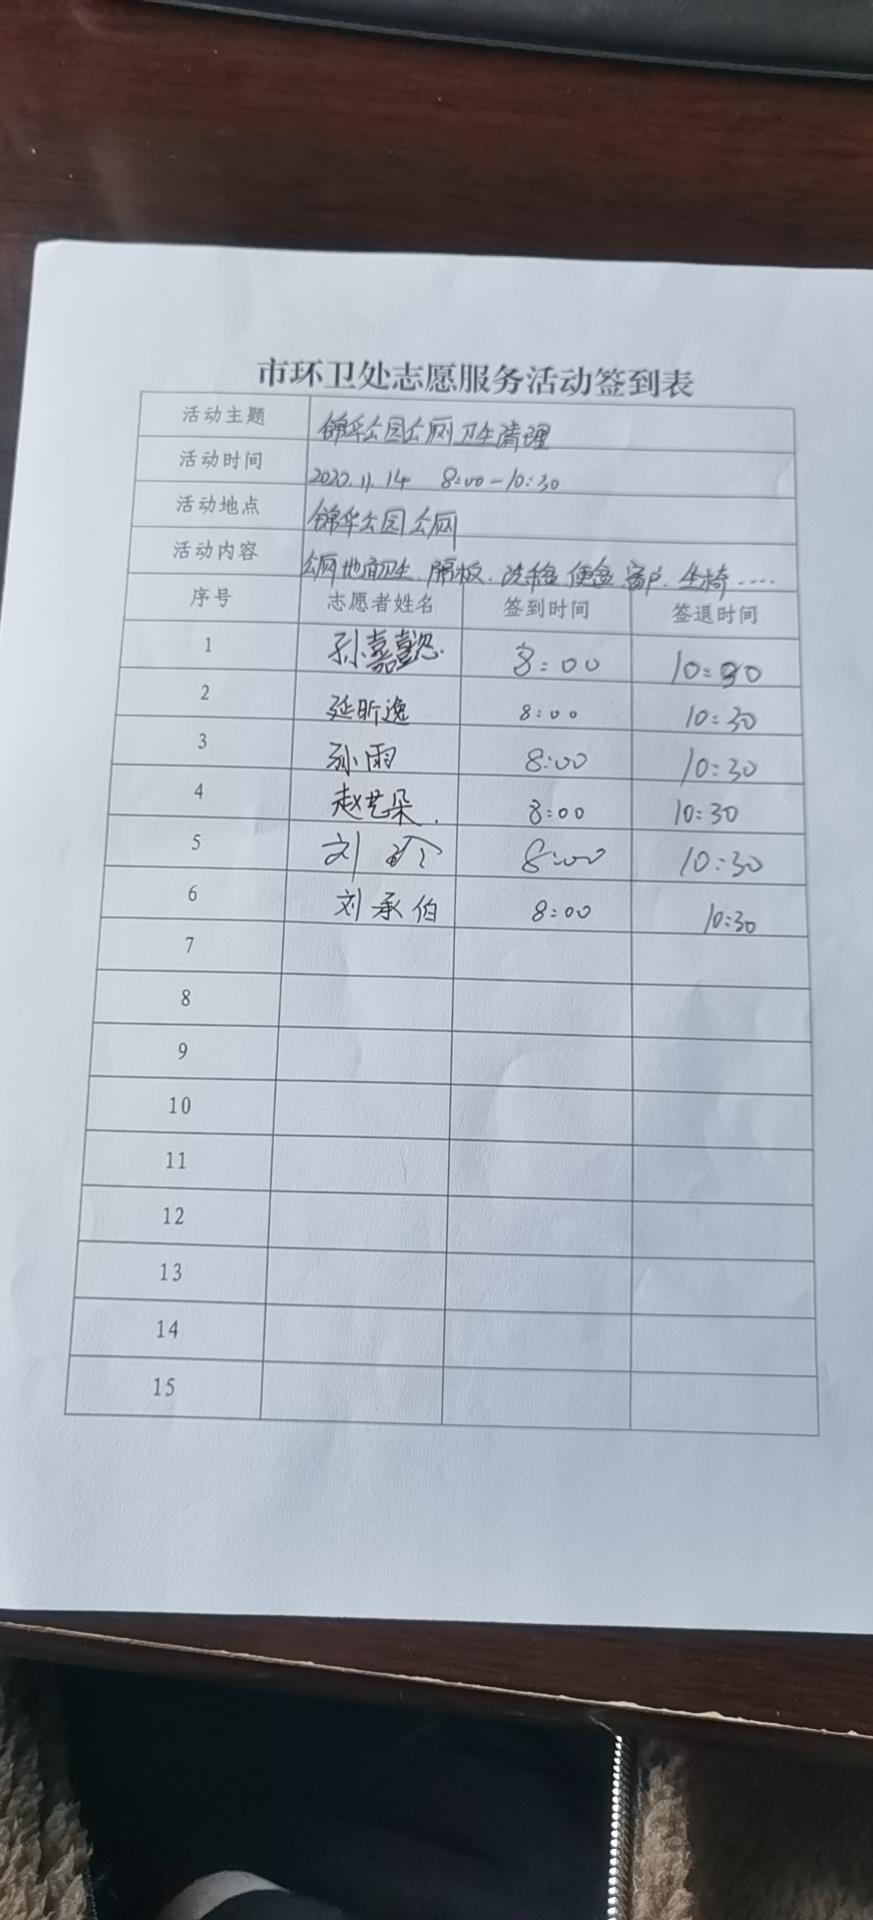 市环卫处志愿服务活动签到表
活动主题 锦华公园公厕卫生清理
活动时间 2020.11.14 8:00-10:30
活动地点 锦华公园公厕
活动内容 公厕地面卫生、隔板、洗手盆、便盆、窗户、坐椅....
序号 志愿者姓名 签到时间 签退时间
1 孙嘉懿 8:00 10:30
2 延昕逸 8:00 10:30
3 孙雨 8:00 10:30
4 赵艺朵. 8:00 10:30
5 刘 8:00 10:30
6 刘承伯 8:00 10:30
7
8
9
10
11
12
13
14
15